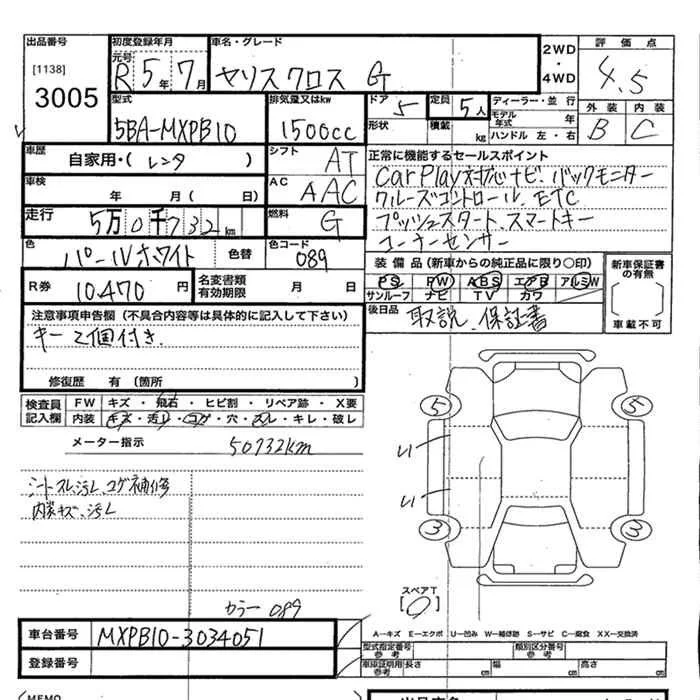 出品番号 初度登録年月 車名・グレード 2WD・4WD 評価点
[1138] 元号 R5年7月 ヤリスクロス G 4.5
3005
型式 排気量又はkw ドア 5 定員 5人 ディーラー・並行 外装 内装
5BA-MXPB10 1500cc 形状 積載 kg モデル年式 年 B C
ハンドル 左・右
車歴 自家用・(レンタ) シフト AT 正常に機能するセールスポイント
車検 年 月(日) AC AAC CarPlay対応ナビ.バックモニター
クルーズコントロール、ETC
走行 5万0千732km 燃料 G プッシュスタート、スマートキー
コーナーセンサー
色 パールホワイト 色替 色コード 089
装備品(新車からの純正品に限り○印) 新車保証書の有無
R券 10.470円 名変書類有効期限 月 日 PS PW ABS エアB アルミW
サンルーフ ナビ TV カワ
注意事項申告欄(不具合内容等は具体的に記入して下さい) 後日品 取説、保証書 車載不可
キー2個付き.
修復歴 有(箇所 )
検査員記入欄 FW キズ・飛石・ヒビ割・リペア跡・X要
内装 キズ・汚レ・コゲ・穴・スレ・キレ・破レ
メーター指示 50732km
5 5
シートスレ、汚レ、コゲ補修
内装キズ、汚レ
3 3
スペアT
[0]
カラー 089
車台番号 MXPB10-3034051
A−キズ E−エクボ U−凹み W−補修跡 S−サビ C−腐食 XX−交換済
登録番号 型式指定番号参考 類別区分番号参考
車庫証明用参考 長さ cm 幅 cm 高さ cm
MEMO